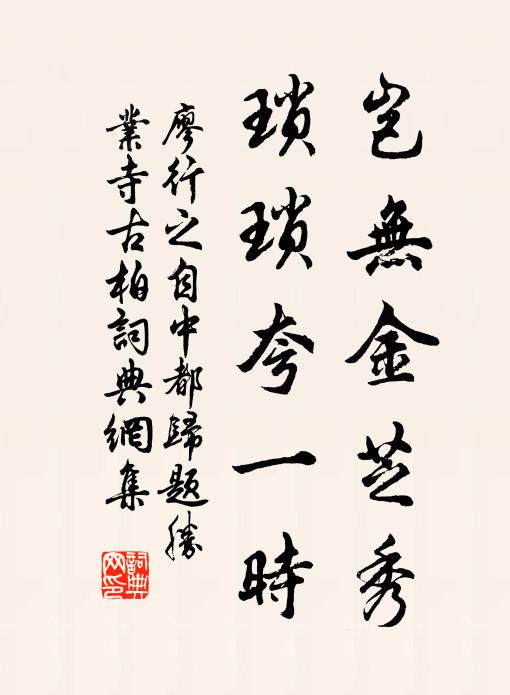 豈無金芝秀
瑣瑣夸一時
廖行之自中都歸題勝
業寺古柏詞典網集
詞典網印